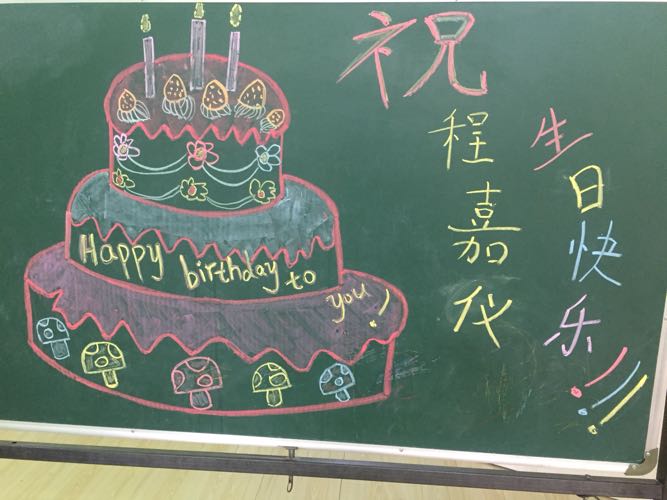 祝
程嘉仪
生日快乐!!!
Happy birthday to you!